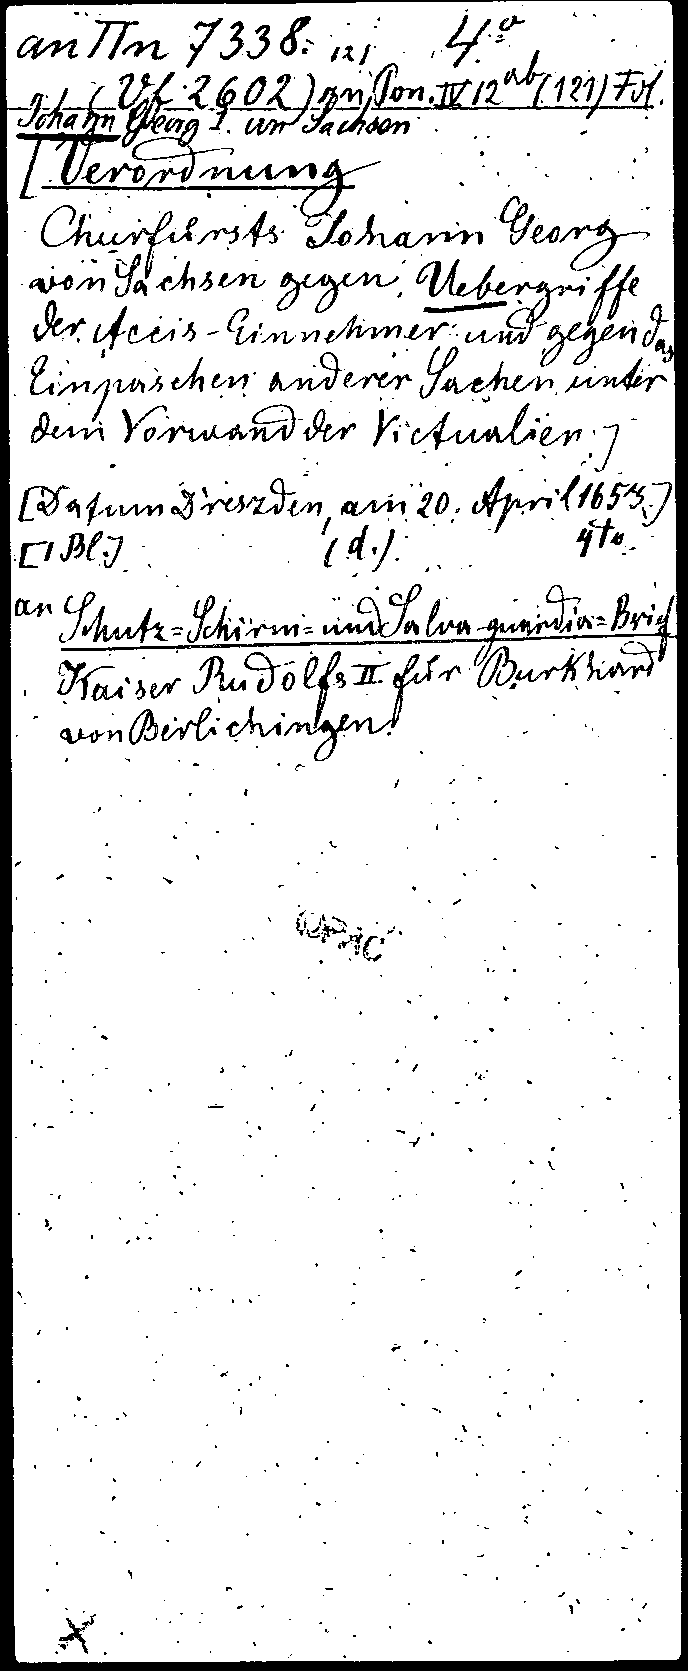 an IIn 7338. 121 4º
(Vf. 2602) an Pon. IV 12ab (121) Fol.
Johann Georg I. von Sachsen
[Verordnung
Churfürsts Johann Georg
von Sachsen gegen Uebergriffe
der Accis-Einnehmer und gegen das
Einpaschen anderer Sachen unter
dem Vorwand der Victualien.]
[Datum Dreszden, am 20. April 1653.]
[1 Bl.] (d.) 4to
an Schutz=Schirm=und Salva guardia=Brief
Kaiser Rudolfs II für Burkhard
von Berlichingen.